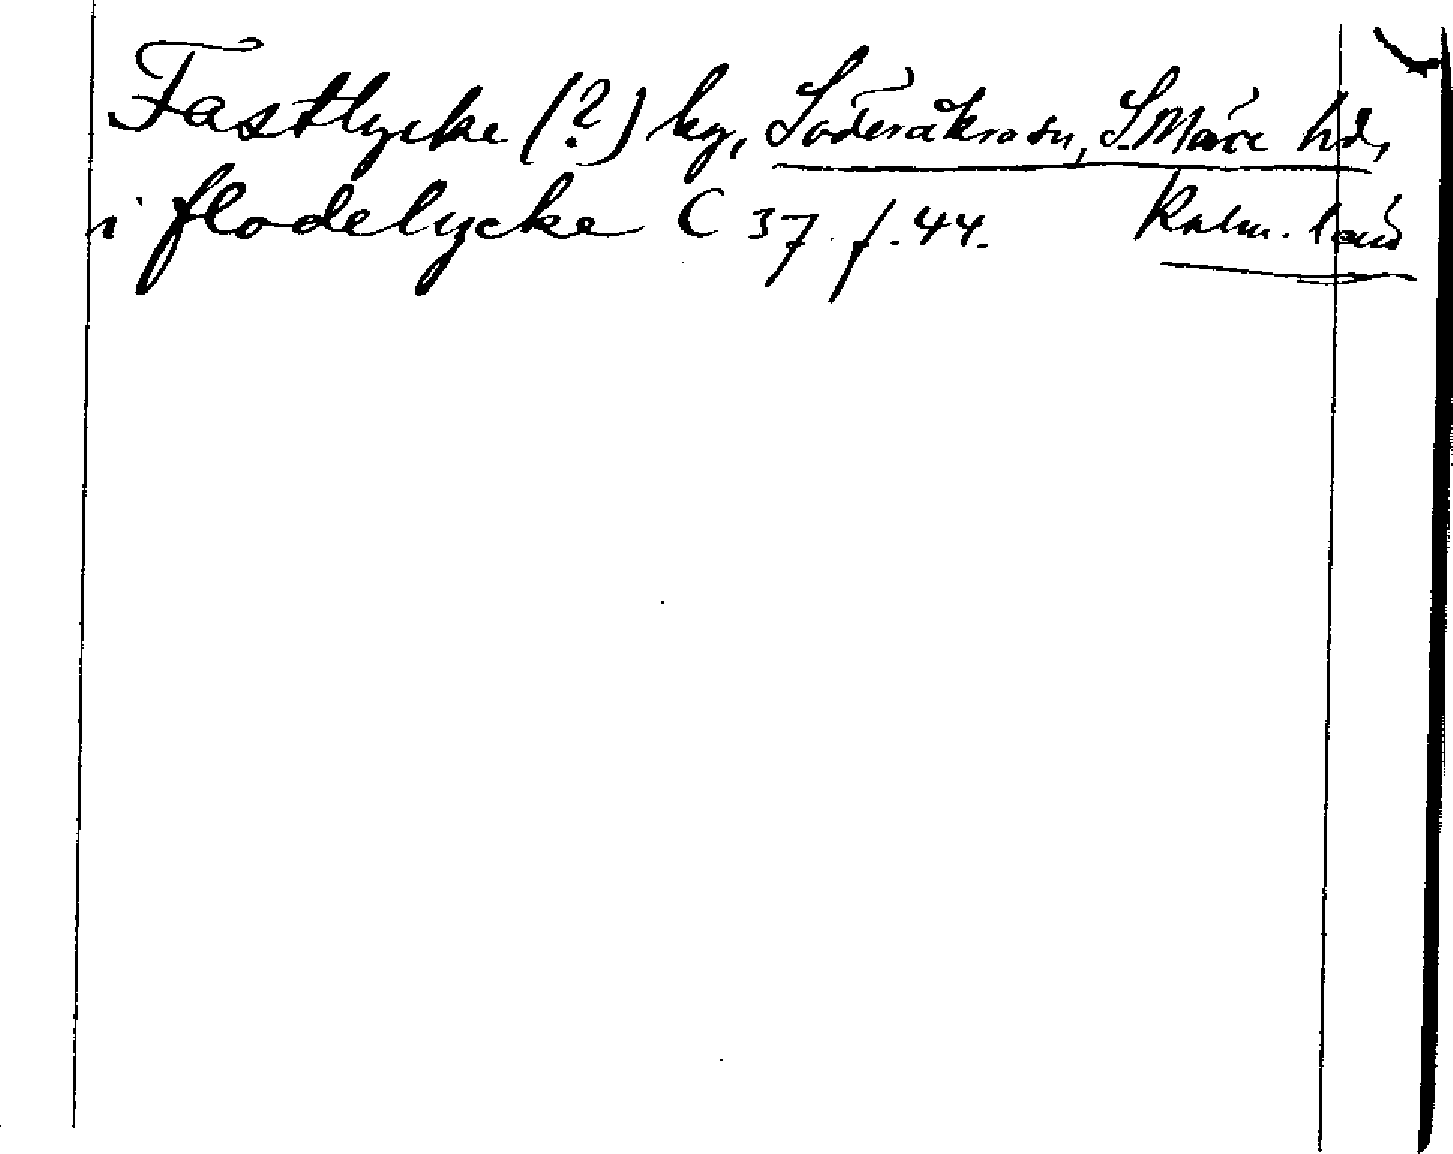 Fastlycke (?) by, Söderåkra sn, S. Möre hd,
i flodelycke C 37 f. 44. Kalm. län